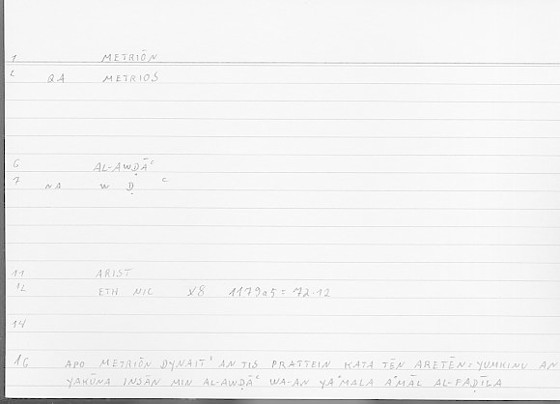 1 METRIŌN
2 QA METRIOS
6 AL-AWḌĀʿ
7 NA W Ḍ ʿ
11 ARIST
12 ETH NIC X8 1179a5 = 72.12
14
16 APO METRIŌN DYNAIT' AN TIS PRATTEIN KATA TĒN ARETĒN: YUMKINU AN
YAKŪNA INSĀN MIN AL-AWḌĀʿ WA-AN YAʿMALA AʿMĀL AL-FAḌĪLA